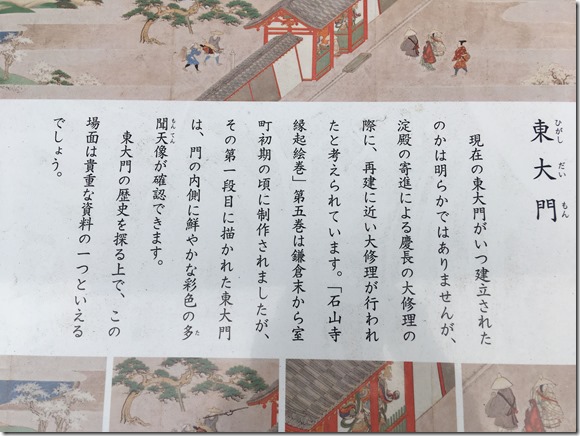 東大門
ひがし だい もん
現在の東大門がいつ建立された
のかは明らかではありませんが、
淀殿の寄進による慶長の大修理の
際に、再建に近い大修理が行われ
たと考えられています。「石山寺
縁起絵巻」第五巻は鎌倉末から室
町初期の頃に制作されましたが、
その第一段目に描かれた東大門
は、門の内側に鮮やかな彩色の多
聞天像が確認できます。
たもんてん
東大門の歴史を探る上で、この
場面は貴重な資料の一つといえる
でしょう。